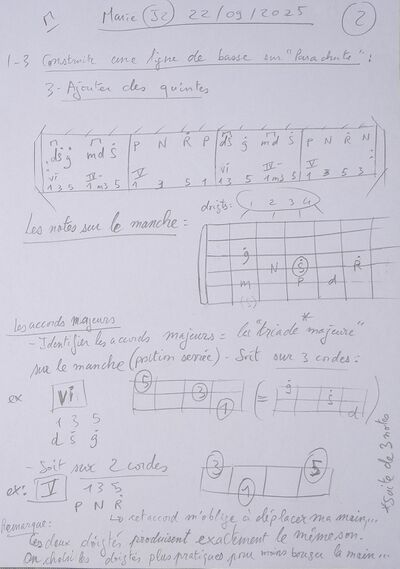 Marie (J2) 22/09/2025 2
1-3 Construire une ligne de basse sur "Parachute":
3- Ajouter des quintes
dṡ g̈ m d ṡ P N Ṙ P dṡ g̈ m d ṡ P N Ṙ N
vi IV- V vi IV- V
1 3 5 1 m3 5 1 3 5 1 1 3 5 1 m3 5 1 3 5 3
doigts: 1 2 3 4
Les notes sur le manche =
g̈ N ṡ Ṙ
m P d
(s)
Les accords majeurs
- Identifier les accords majeurs = la "triade majeure" *
sur le manche (position serrée) - Soit sur 3 cordes =
ex vi 5 3 1 (= g̈ ṡ d)
1 3 5
d ṡ g̈
* Suite de 3 notes
- Soit sur 2 cordes
ex: V 1 3 5 3 1 5
P N Ṙ
↳ cet accord m'oblige à déplacer ma main...
Remarque:
Ces deux doigtés produisent exactement le même son.
On choisi les doigtés plus pratiques pour moins bouger la main...